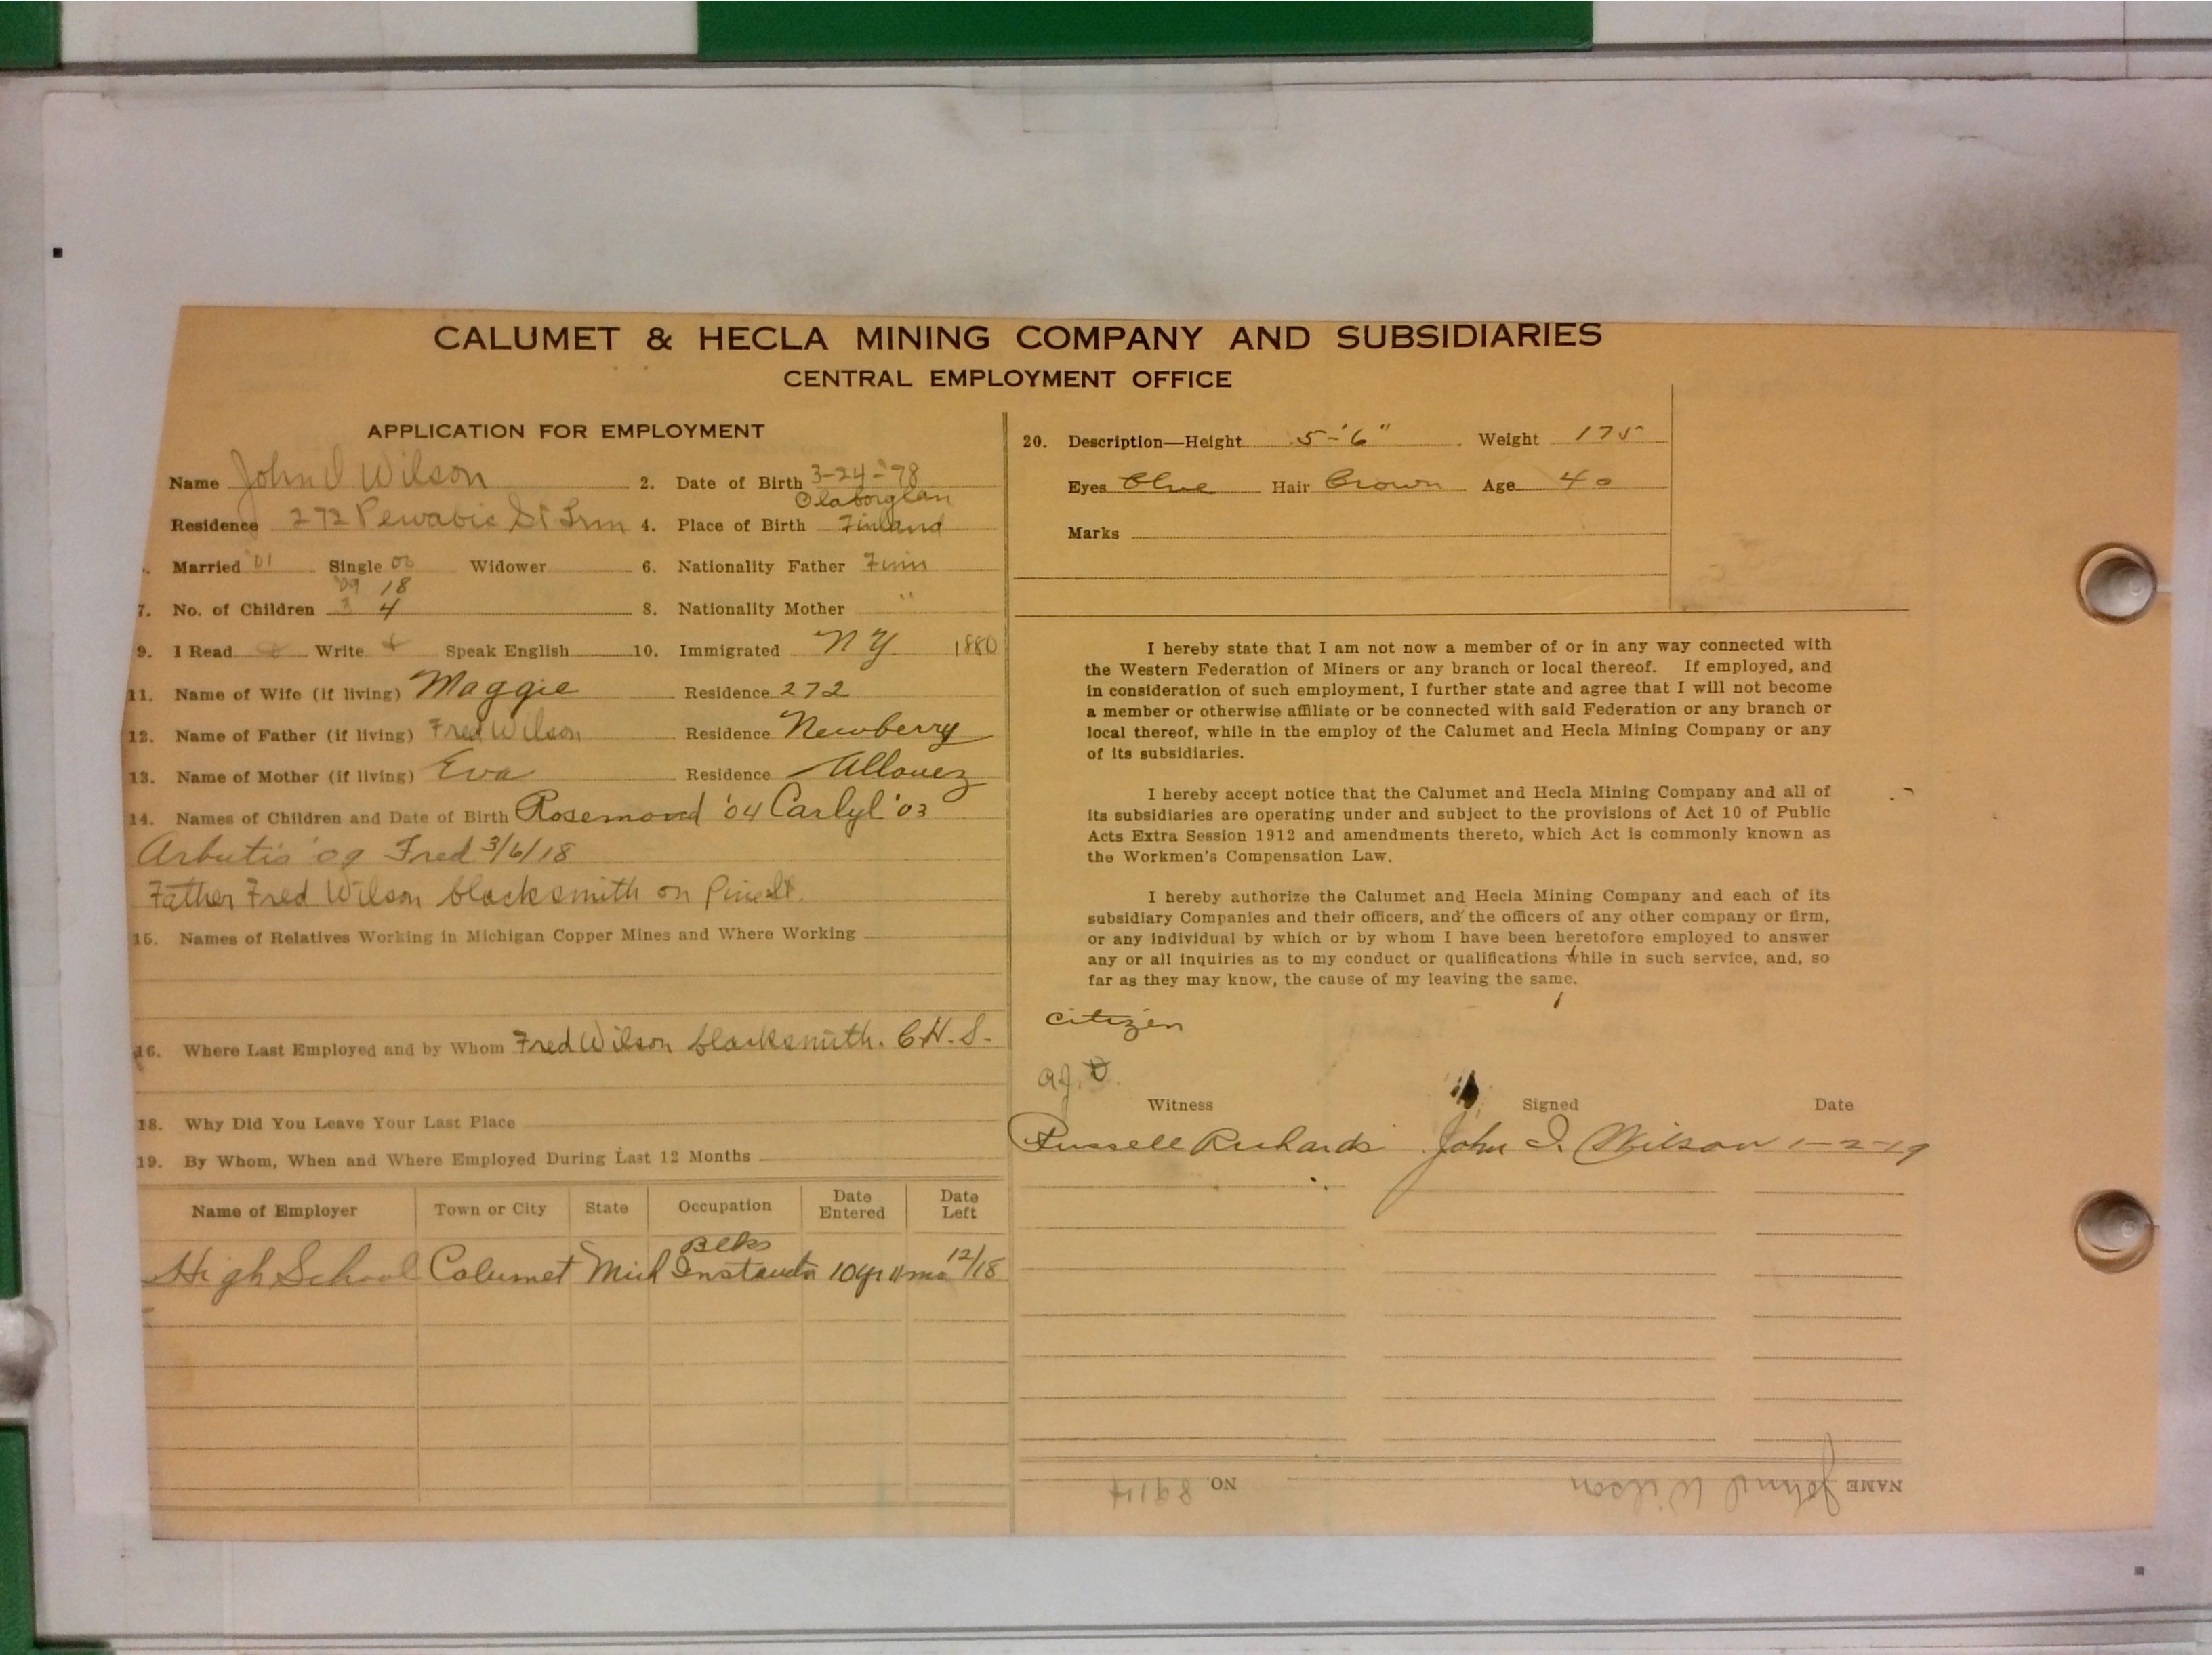 CALUMET & HECLA MINING COMPANY AND SUBSIDIARIES
CENTRAL EMPLOYMENT OFFICE
APPLICATION FOR EMPLOYMENT
Name John I Wilson 2. Date of Birth 3-24-'78
Residence 272 Pewabic St 4. Place of Birth Finland
Married '01 Single Widower 6. Nationality Father Finn
'09 18
7. No. of Children 3 4 8. Nationality Mother "
9. I Read Write Speak English 10. Immigrated NY 1880
11. Name of Wife (if living) Maggie Residence 272
12. Name of Father (if living) Fred Wilson Residence Newberry
13. Name of Mother (if living) Eva Residence Allouez
14. Names of Children and Date of Birth Rosemond '04 Carlyl '03
Arbutis '09 Fred 3/6/18
Father Fred Wilson blacksmith on Pine St.
15. Names of Relatives Working in Michigan Copper Mines and Where Working
16. Where Last Employed and by Whom Fred Wilson blacksmith. C.H.S.
18. Why Did You Leave Your Last Place
19. By Whom, When and Where Employed During Last 12 Months
Name of Employer Town or City State Occupation Date Entered Date Left
High School Calumet Mich Blks 10 yr 11 mo 12/18
20. Description—Height 5-'6" Weight 175
Eyes Blue Hair Brown Age 40
Marks
I hereby state that I am not now a member of or in any way connected with
the Western Federation of Miners or any branch or local thereof. If employed, and
in consideration of such employment, I further state and agree that I will not become
a member or otherwise affiliate or be connected with said Federation or any branch or
local thereof, while in the employ of the Calumet and Hecla Mining Company or any
of its subsidiaries.
I hereby accept notice that the Calumet and Hecla Mining Company and all of
its subsidiaries are operating under and subject to the provisions of Act 10 of Public
Acts Extra Session 1912 and amendments thereto, which Act is commonly known as
the Workmen's Compensation Law.
I hereby authorize the Calumet and Hecla Mining Company and each of its
subsidiary Companies and their officers, and the officers of any other company or firm,
or any individual by which or by whom I have been heretofore employed to answer
any or all inquiries as to my conduct or qualifications while in such service, and, so
far as they may know, the cause of my leaving the same.
citizen
Witness Signed Date
Russell Richards John I. Wilson 1-2-19
NAME John I Wilson NO.